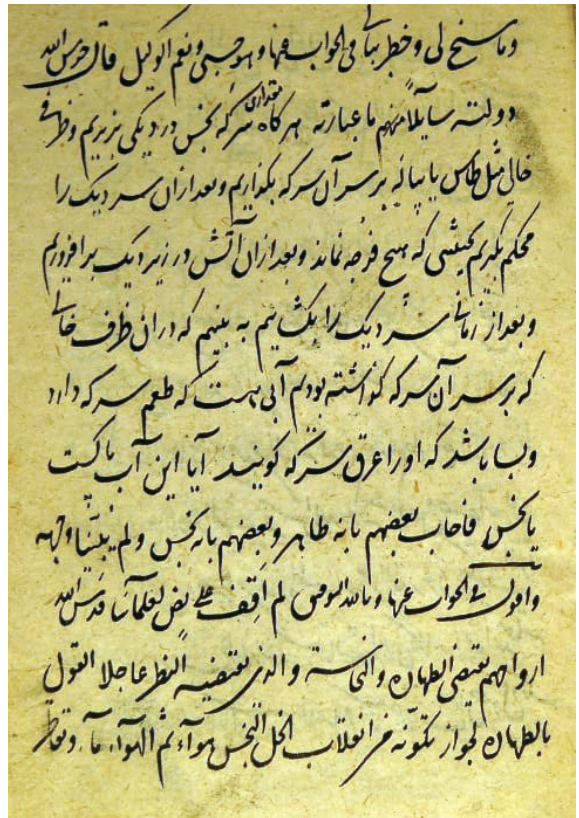 وما سنح لی وخطر ببالی فی الجواب عنها وهو حسبی ونعم الوکیل قال حرس الله
دولته سایلاً منهم ما عبارته هر کاه مقداری سرکه نجس در دیکی بریزیم وظرفی
خالی مثل طاس یا پیاله بر سر آن سرکه بکذاریم وبعد ازان سر دیک را
محکم بکیریم بحیثیتی که هیچ فرجه نماند وبعد ازان آتش در زیر دیک برافروزیم
وبعد از زمانی سر دیک را بکشاییم به بینیم که دران ظرف خالی
که بر سر آن سرکه کذاشته بودیم آبی هست که طعم سرکه دارد
وبسا باشد که اورا عرق سرکه کویند آیا این آب پاکست
یا نجس فاجاب بعضهم بانه طاهر وبعضهم بانه نجس ولم یبیّنا وجهه
واقول فی الجواب عنها وبالله التوفیق لم اقف علی نص لعلمآئنا قدس الله
ارواحهم یقتضی الطهارة والنجاسة والذی یقتضیه النظر عاجلا القول
بالطهارة لجواز تکوّنه من انقلاب الخل النجس هوآء ثم الهوآء مآء وتقاطر